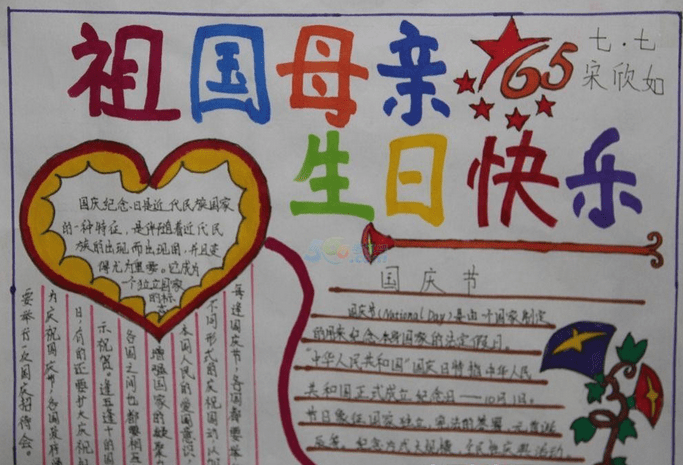 祖国母亲
65
七.七
宋欣如
生日快乐
国庆纪念日是近代民族国家
的一种特征，是伴随着近代民
族的出现而出现的，并且变
得尤为重要。它成为
一个独立国家
的标
志
国庆节
国庆节(National Day)是由一个国家制定
的用来纪念本身国家的法定假日
"中华人民共和国"国庆日特指中华人民
共和国正式成立纪念日——10月1日。
节日象征国家独立、宪法的签署、元首诞
辰等，纪念方式大规模、全民性庆典活动
每逢国庆节，各国都要举
不同形式的庆祝活动，以加
本国人民的爱国意识，
增强国家的凝聚力
各国之间也都要相互
示祝贺。逢五逢十的国
日，有的还要扩大庆祝
为庆祝国庆节，各国政府
要举行一次国庆招待会。